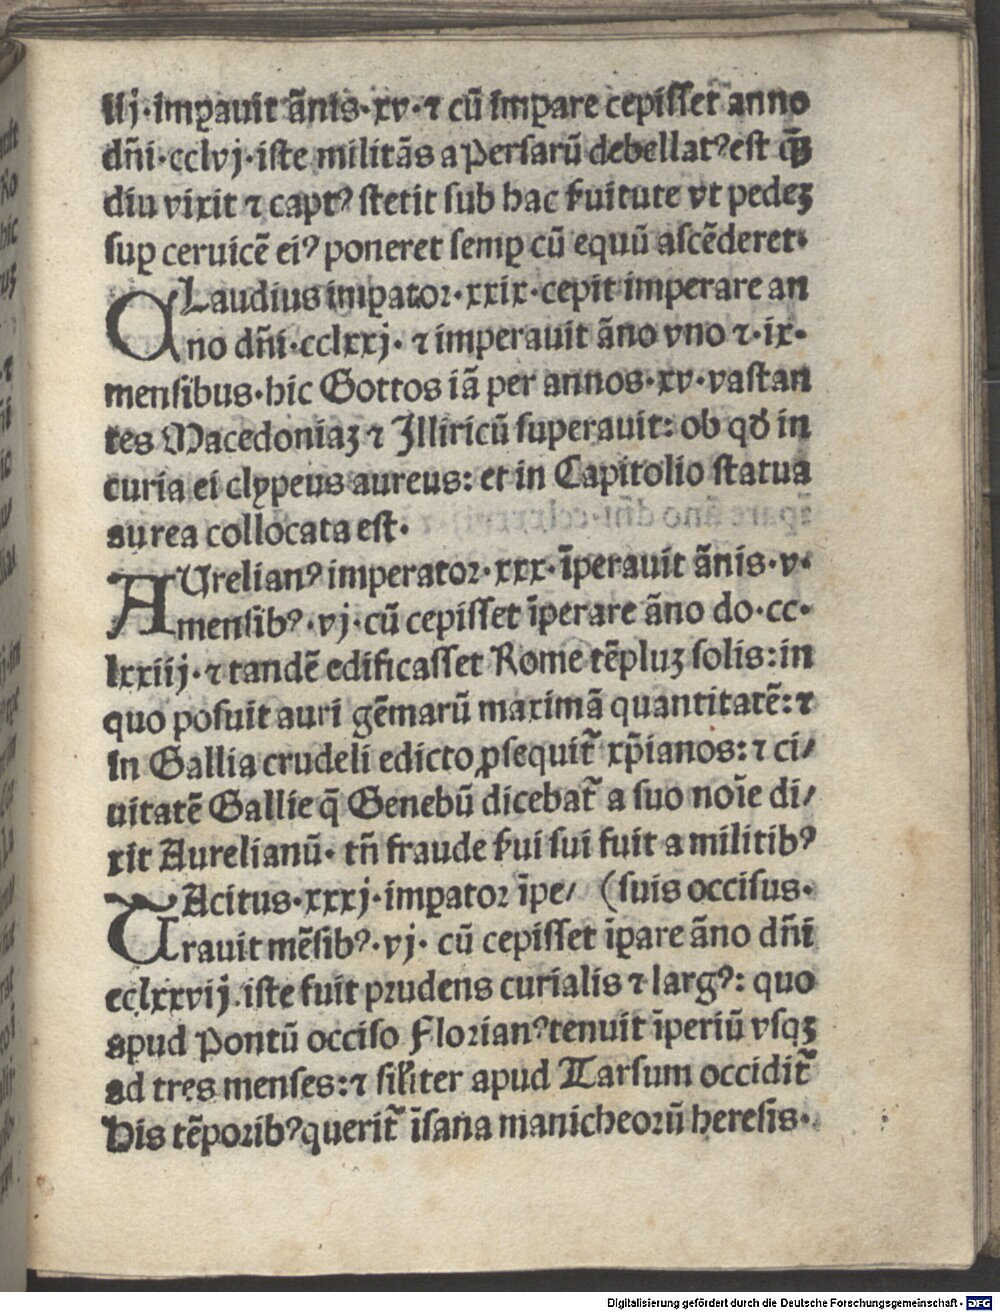 iij·imꝑauit ãnis·xv·⁊ cũ imꝑare cepiſſet anno
dñi·cclvj·iſte militãs a Perſarũ debellatꝰ eſt qͫ
diu vixit ⁊ captꝰ ſtetit ſub hac ſ̉uitute vt pedeꝫ
ſuꝑ ceruicẽ eiꝰ poneret ſemꝑ cũ equũ aſcẽderet·
CLaudius imꝑatoꝛ·xxix·cepit imperare an
no dñi·cclxxj·⁊ imperauit ãno vno ⁊·ix·
menſibus·hic Gottos iã per annos·xv·vaſtan
tes Macedoniaꝫ ⁊ Illiricũ ſuperauit: ob qđ in
curia ei clypeus aureus: et in Capitolio ſtatua
aurea collocata eſt·
AUrelianꝰ imperatoꝛ·xxx·ĩperauit ãnis·v·
menſibꝰ·vj·cũ cepiſſet ĩperare ãno do·cc·
lxxiij·⁊ tandẽ edificaſſet Rome tẽpluꝫ ſolis: in
quo poſuit auri gẽmarũ maximã quantitatẽ: ⁊
in Gallia crudeli edicto ꝓſequit̃ xp̃ianos: ⁊ ci/
uitatẽ Gallie q̃ Genebũ dicebat̃ a ſuo noĩe di/
xit Aurelianũ· tñ fraude ſ̉ui ſui fuit a militibꝰ
TAcitus·xxxj·imꝑatoꝛ ĩpe/ (ſuis occiſus·
rauit mẽſibꝰ·vj· cũ cepiſſet ĩꝑare ãno dñi
cclxxvij·iſte fuit pꝛudens curialis ⁊ largꝰ: quo
apud Pontũ occiſo Floꝛianꝰ tenuit ĩperiũ vſqꝫ
ad tres menſes: ⁊ ſiłiter apud Tarſum occidit̃
His tẽpoꝛibꝰ querit̃ ĩſana manicheoꝛũ hereſis·
Digitalisierung gefördert durch die Deutsche Forschungsgemeinschaft · DFG